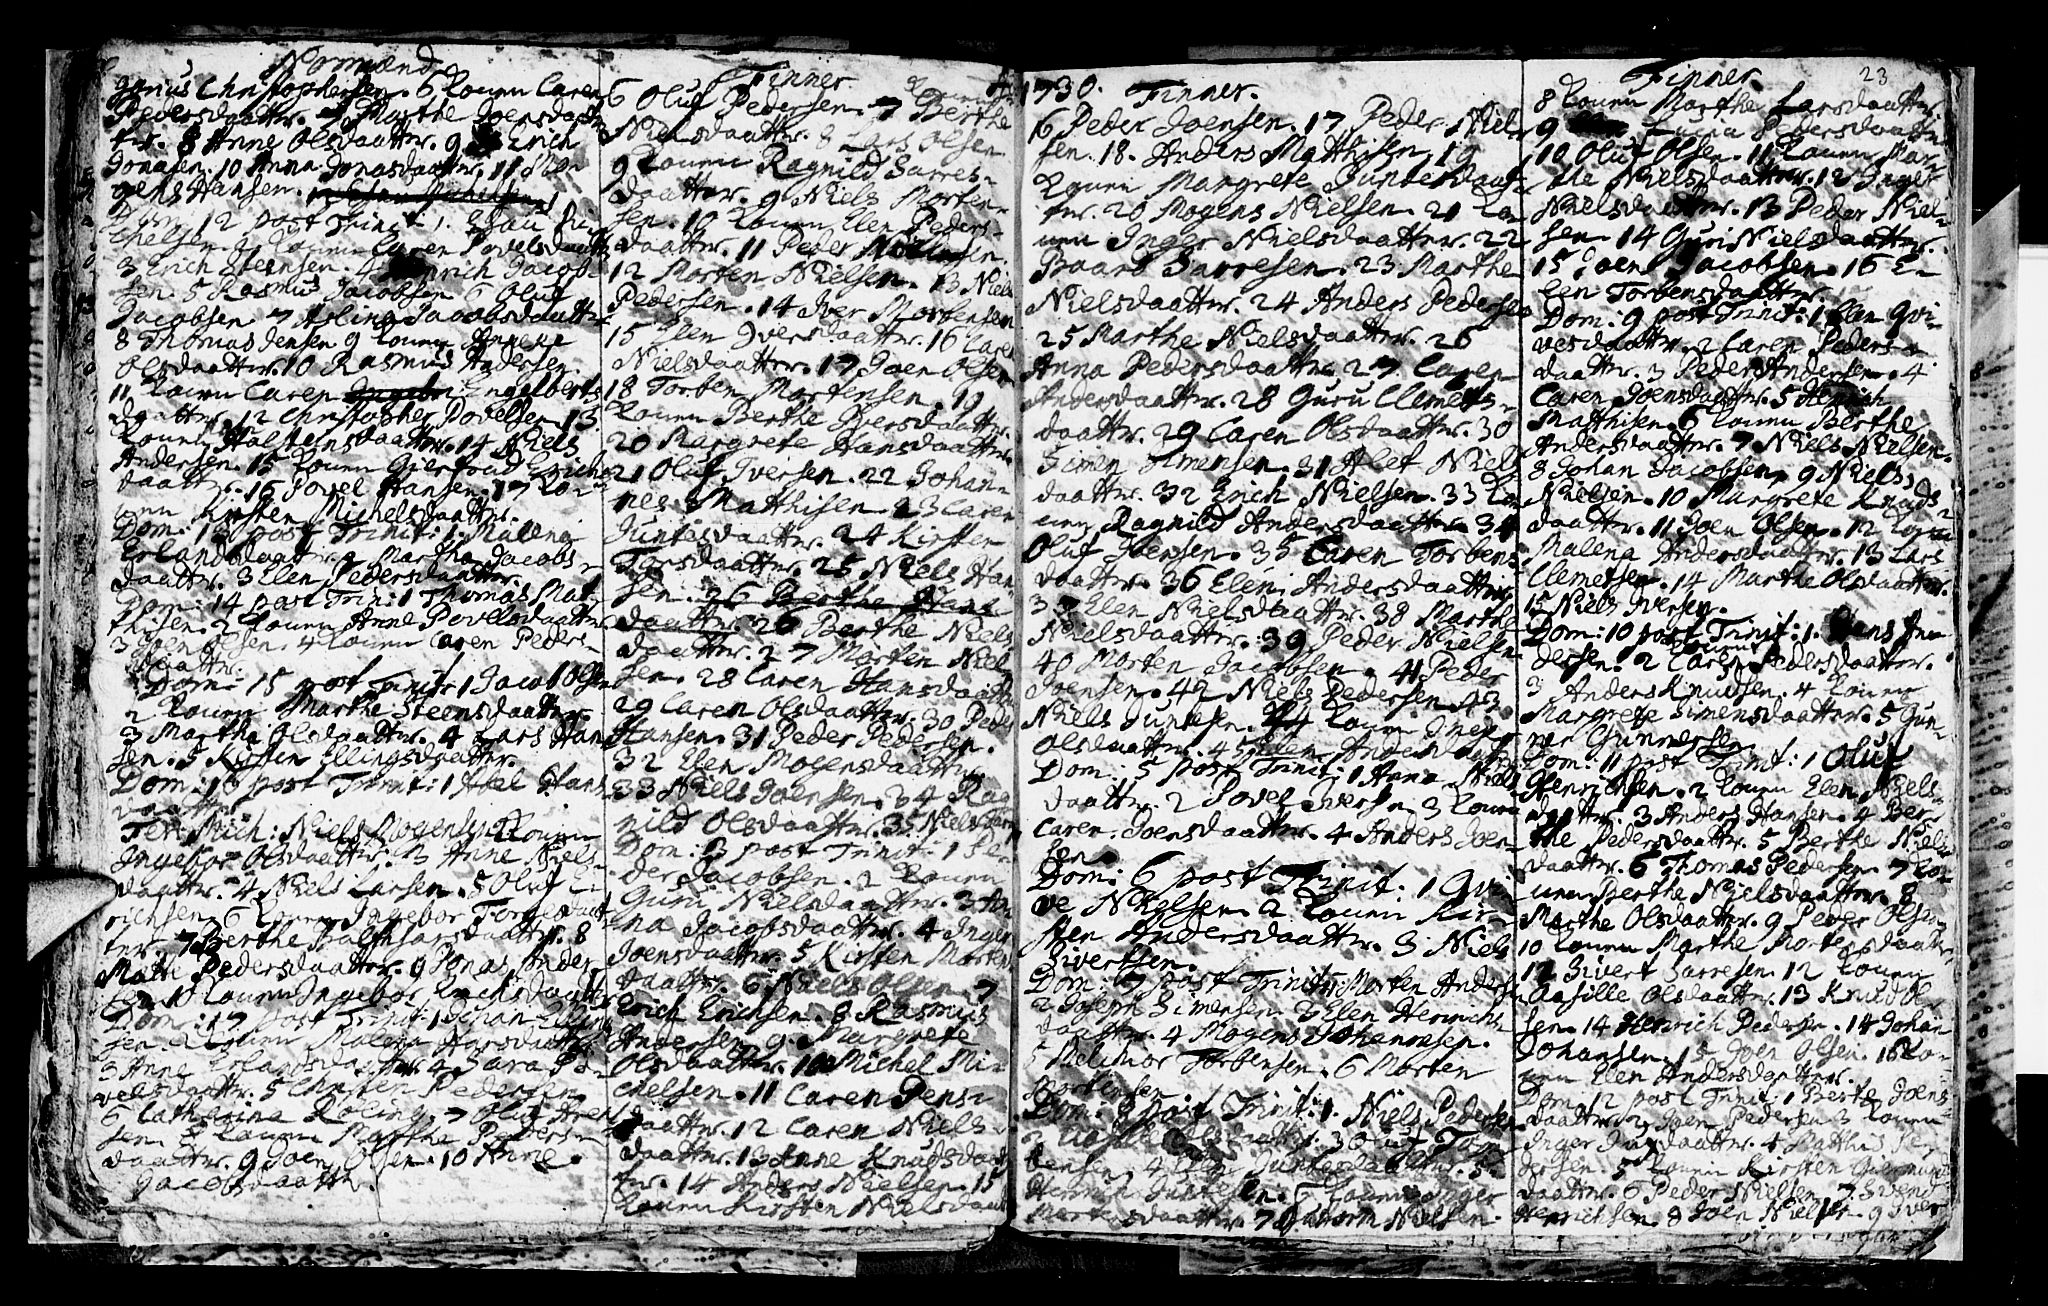 Normænd
gorius Christophersen. 6 Konen Caren
Pedersdaatter. 7 Marthe Joensdaat
ter. 8 Anne Olsdaatter. 9 Erich
Jonasen. 10 Anna Jonasdaatter. 11 Mon
gens Hansen.
Dom: 12 post Trinit: 1.
chelsen. 2 Konen Caren Povelsdaatter
3 Erich Steensen. 4 Henrich Jacob-
sen. 5 Rasmus Jacobsen. 6 Oluf
Jacobsen. 7 Jacobsdaatter
8 Thomas Jensen 9 Konen Anneke
Olsdaatter. 10 Rasmus Andersen
11 Konen Caren Engelberts
daatter. 12 Christopher Povelsen. 13
Konen daatter. 14 Niels
Andersen. 15 Konen Giertrud Erichs
daatter. 16 Povel Hansen. 17 Ko-
nen Kirsten Michelsdaatter.
Dom: 13 post Trinit: 1. Malena
Erlandsdaatter. 2 Martha Jacobs-
daatter. 3 Elen Pedersdaatter.
Dom: 14 post Trin: 1 Thomas Mat-
thisen. 2 Konen Anne Povelsdaatter
3 Joen Olsen. 4 Konen Caren Peders-
daatter.
Dom: 15 post Trinit: 1 Jacob Olsen
2 Konen Marthe Steensdaatter.
3 Martha Olsdaatter. 4 Lars Han
sen. 5 Kirsten Ellingsdaatter.
Dom: 16 post Trinit: 1 Abel Hans
daatter.
Fest: Mich: Niels Mogensen 2 Konen
Ingebor Olsdaatter. 3 Anne Niels-
daatter. 4 Niels Larsen. 5 Oluf E-
richsen. 6 Konen Ingebor daat
ter 7 Berthe Balthsarsdaatter. 8
Mætte Pedersdaatter. 9 Jonas Ander
sen 10 Konen Ingebor Erichsdaatter
Dom: 17 post Trinit: 1 Johan
sen. 2 Konen Malena daatter.
3 Anne Erlandsdaatter 4 Sara Po-
velsdaatter. 5 Christen Pedersen
6 Catharina Roling. 7 Oluf Aren
sen. 8 Konen Marthe Peders-
daatter. 9 Joen Olsen. 10 Anne
Jacobsdaatter.
Finner
6 Oluf Pedersen. 7 Konen Berthe
Nielsdaatter. 8 Lars Olsen
9 Konen Ragnild Sarres-
daatter. 9 Niels Morten-
sen. 10 Konen Elen Peders-
daatter. 11 Peder
12 Morten Nielsen. 13 Niels
Pedersen. 14 Iver Mortensen
15 Elen Iversdaatter. 16 Caren
Nielsdaatter. 17 Joen Olsen
18 Torben Mortensen. 19
Konen Berthe Iversdaatter.
20 Margrete Hansdaatter.
21 Oluf Iversen. 22 Johan-
nes Matthisen 23 Caren
Juntesdaatter. 24 Kirsten
Torsdaatter. 25 Niels Han
sen. 26 Berthe
daatter. 26 Berthe Niels
daatter. 27 Martin Niel
sen. 28 Caren Hansdaatter
29 Caren Olsdaatter. 30 Peder
Hansen. 31 Peder Pedersen.
32 Elen Mogensdaatter.
33 Niels Joensen. 34 Rag
nild Olsdaatter. 35 Niels
Dom: 3 post Trinit: 1
ders Jacobsen. 2 Konen
Guri Nielsdaatter. 3 An
na Jacobsdaatter. 4 Inger
Joensdaatter. 5 Kirsten Morten
daatter. 6 Niels Olsen 7
Erich Erichsen. 8 Rasmus
Andersen. 9 Margrete
Olsdaatter. 10 Michel Mi-
chelsen. 11 Caren
daatter. 12 Caren Niels
daatter. 13 Anne Knudsdaat
ter. 14 Anders Nielsen. 15
Konen Kirsten Nielsdaat
1730. Finner.
16 Peder Joensen. 17 Peder Niel
sen. 18. Anders Matthisen 19
Konen Margrete Juntesdaat
ter. 20 Mogens Nielsen. 21 Ko-
nen Inger Nielsdaatter. 22
Baard Sarresen. 23 Marthe
Nielsdaatter. 24 Anders Pedersen
25 Marthe Nielsdaatter. 26
Anna Pedersdaatter 27 Caren
Andersdaatter. 28 Guru Clemets-
daatter. 29 Caren Olsdaatter. 30
Simen Simensen. 31 Alet Niels
daatter. 32 Erich Nielsen. 33 Ko
nen Ragnild Andersdaatter 34
Oluf Joensen. 35 Caren Torbens
daatter. 36 Elen Andersdaatter
37 Elen Nielsdaatter. 38 Marthe
Nielsdaatter. 39 Peder Nielsen
40 Morten Jacobsen. 41 Peder
Joensen. 42 Niels Pedersen 43
Niels Juntesen. 44 Konen Inger
Olsdaatter. 45 Elen Andersdaatter
Dom: 5 post Trinit: 1 Anna Niels
daatter. 2 Povel Iversen. 3 Konen
Caren Joensdaatter. 4 Anders Joen-
sen
Dom: 6 post Trinit: 1 Qvi
ve Nielsen. 2 Konen Kir-
sten Andersdaatter. 3 Niels
Sivertsen.
Dom: 7 post Trinit: Morten Andersen
2 Joseph Simensen. 3 Elen Henrichs-
daatter. 4 Mogens Johannesen.
5 Melchior Torbensen. 6 Morten
Mortensen
Dom: 8 post Trinit: 1. Niels Pedersen
2 daatter. 3 Oluf Tor
bensen. 4 Elen Juntesdaatter. 5
Henrich 6 Konen Inger
Mortensdaatter. 7 Nielsen.
Finner. 23
8 Konen Marthe Larsdaatter.
9 Konen Pedersdaatter
10 Oluf Olsen. 11 Konen Mar-
the Nielsdaatter. 12 Inger
Nielsdaatter. 13 Peder Niel-
sen. 14 Guri Nielsdaatter.
15 Joen Jacobsen. 16 E-
len Torbensdaatter.
Dom: 9 post Trinit: 1 Elen Qvi-
vesdaatter. 2 Caren Peders-
daatter. 3 Peder Andersen. 4
Caren Joensdaatter. 5 Henrich
Matthisen. 6 Konen Berthe
Andersdaatter. 7 Niels Nielsen.
8 Johan Jacobsen. 9 Niels
Nielsen. 10 Margrete Knuds-
daatter. 11 Joen Olsen. 12 Konen
Malena Andersdaatter. 13 Lars
Clemetsen. 14 Marthe Olsdaatter.
15 Niels Iversen.
Dom: 10 post Trinit: 1. Hans An-
dersen. 2 Konen Caren Pedersdaatter.
3 Anders Knudsen. 4 Konen
Margrete Simensdaatter. 5 Gun-
ner Gunnersen
Dom: 11 post Trinit: 1 Oluf
Henrichsen. 2 Konen Elen Niels-
daatter. 3 Anders Hansen. 4 Ber-
the Pedersdaatter. 5 Berthe Niels
daatter. 6 Thomas Pedersen. 7 Ko-
nen Berthe Nielsdaatter. 8
Marthe Olsdaatter. 9 Peder Olsen
10 Konen Marthe Mortensdaatter
11 Sivert Sarresen. 12 Konen
Aasille Olsdaatter. 13 Knud Ol
sen. 14 Henrich Pedersen. 14 Johan
Johansen. 15 Joen Olsen. 16 Ko-
nen Elen Andersdaatter.
Dom: 12 post Trinit: 1 Berte Joens-
daatter 2 Joen Pedersen 3 Konen
Inger daatter. 4 Matthis Pe-
dersen. 5 Konen Kirsten
daatter. 6 Peder Nielsen. 7 Svend
Henrichsen. 8 Joen Nielsen. 9 Iver